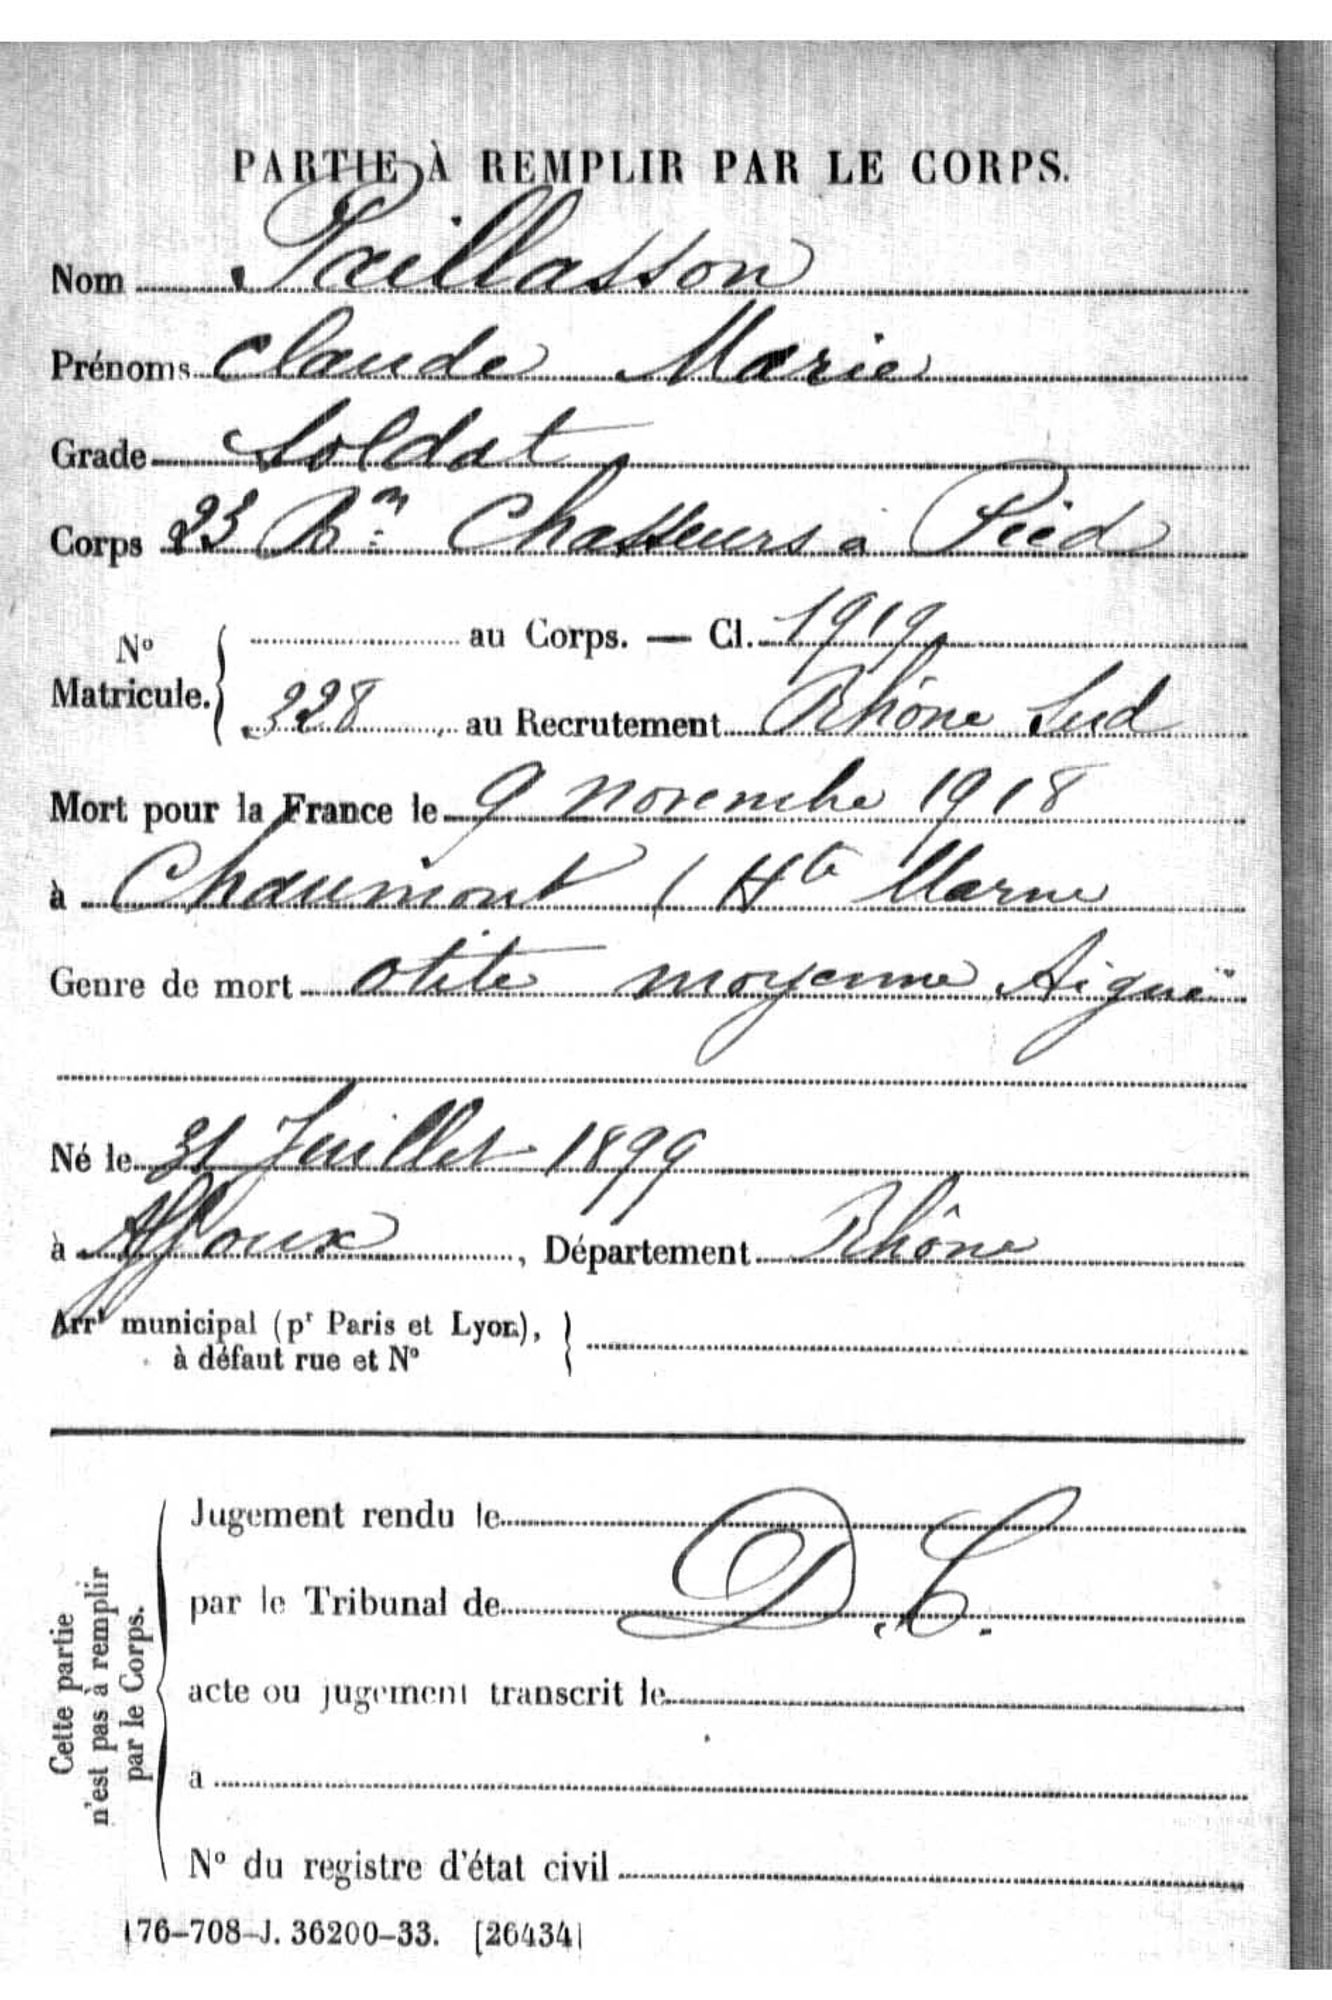 PARTIE À REMPLIR PAR LE CORPS.
Nom Paillasson
Prénoms Claude Marie
Grade Soldat
Corps 23 Bon Chasseurs à Pied
No Matricule. au Corps. — Cl. 1919
328 au Recrutement Rhône Sud
Mort pour la France le 9 novembre 1918
à Chaumont (Hte Marne
Genre de mort otite moyenne Aiguë
Né le 31 Juillet 1899
à Affoux, Département Rhône
Arrt municipal (pr Paris et Lyon),
à défaut rue et No
Cette partie
n'est pas à remplir
par le Corps.
Jugement rendu le
par le Tribunal de D.C.
acte ou jugement transcrit le
a
No du registre d'état civil
176-708-J. 36200-33. [26434]